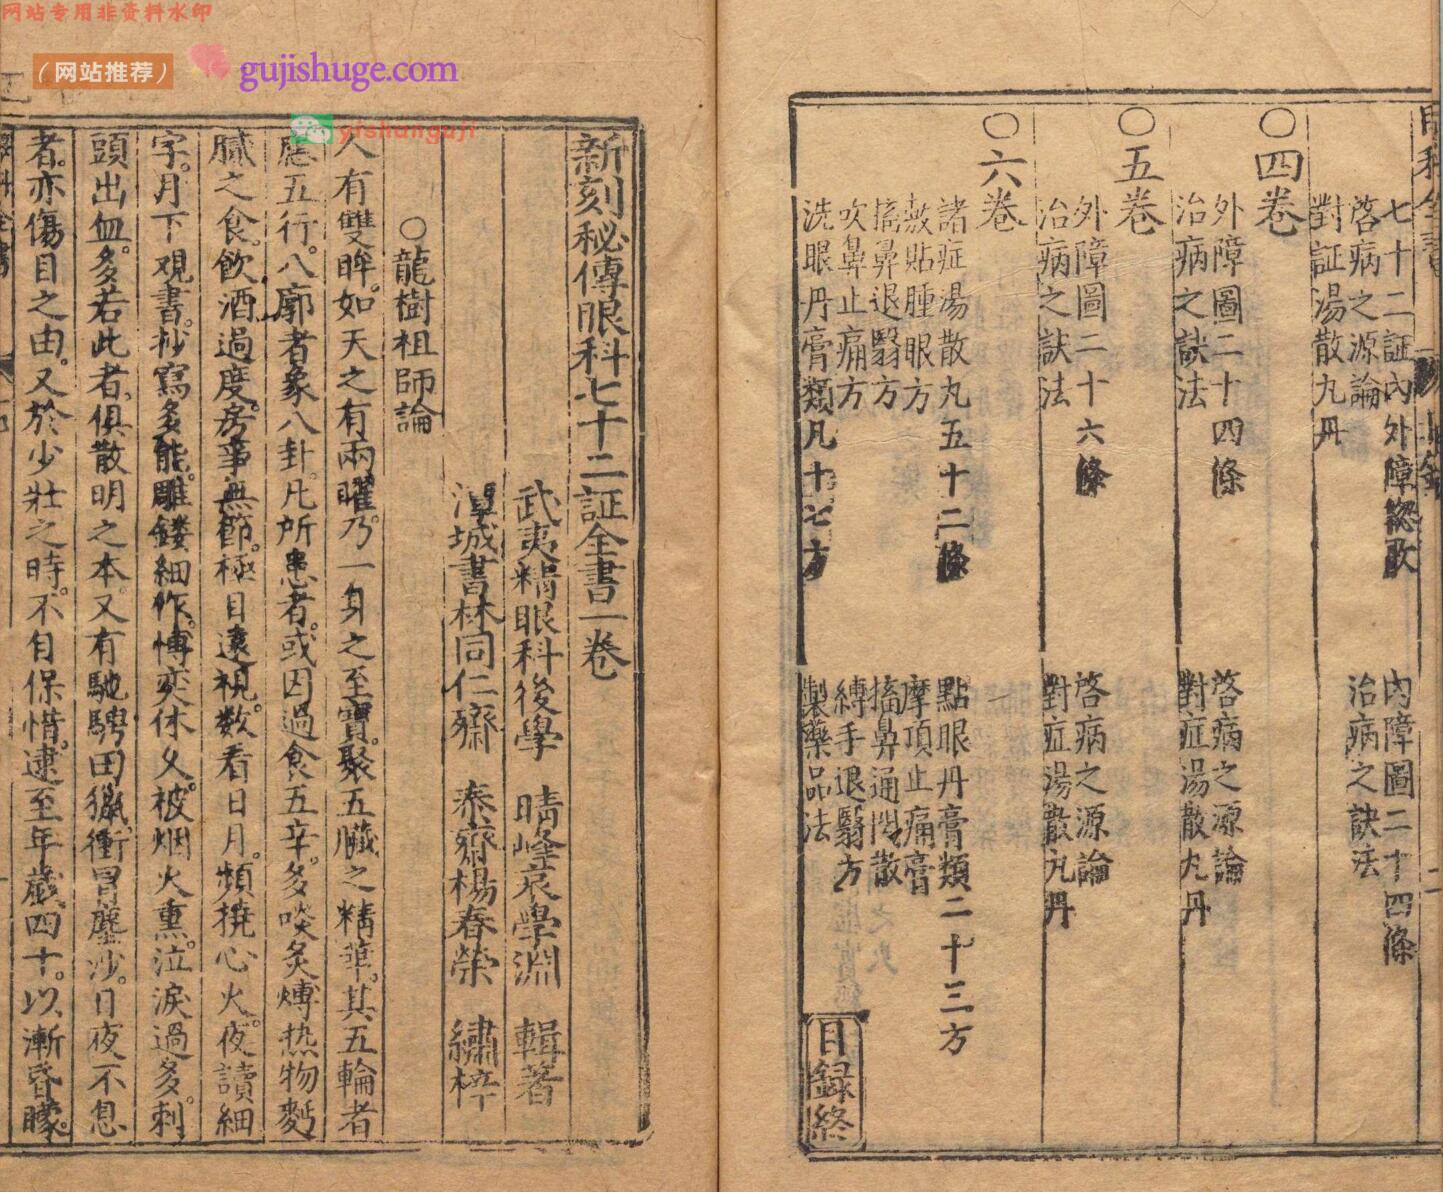 网站专用非资料水印
（网站推荐）
gujishuge.com
yishanguji
七十二証內外障總歌
內障圖二十四條
啓病之源論
治病之訣法
對証湯散丸丹
〇四卷
外障圖二十四條
啓病之源論
治病之訣法
對症湯散丸丹
〇五卷
外障圖二十六條
啓病之源論
治病之訣法
對症湯散丸丹
〇六卷
諸症湯散丸五十二條
點眼丹膏類二十三方
敷貼腫眼方
摩頂止痛膏
搐鼻退翳方
搐鼻通関散
吹鼻止痛方
縛手退翳方
洗眼丹膏類凡十七方
製藥品法
目錄終
新刻秘傳眼科七十二証全書一卷
武夷精眼科後學 晴峰袁學淵 輯著
潭城書林同仁齋 泰齋楊春榮 繡梓
〇龍樹祖師論
人有雙眸。如天之有兩曜。乃一身之至寶。聚五臟之精華。其五輪者
應五行。八廓者象八卦。凡所患者。或因過食五辛。多啖炙煿热物麪
膩之食。飲酒過度。房事無節。極目遠視。数看日月。頻撓心火。夜讀細
字。月下观書。抄寫多能。雕鏤細作。博奕休久。被烟火熏。泣淚過多。刺
頭出血。多若此者。俱散明之本。又有馳騁田獵。衝冒塵沙。日夜不息
者。亦傷目之由。又於少壯之時。不自保惜。逮至年歲四十。以漸昏矇。